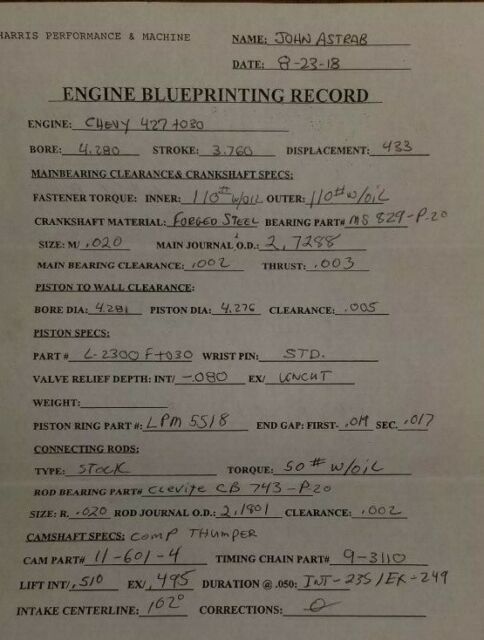 HARRIS PERFORMANCE & MACHINE
NAME: JOHN ASTRAB
DATE: 8-23-18
ENGINE BLUEPRINTING RECORD
ENGINE: CHEVY 427 +030
BORE: 4.280 STROKE: 3.760 DISPLACEMENT: 433
MAINBEARING CLEARANCE& CRANKSHAFT SPECS:
FASTENER TORQUE: INNER: 110# w/oil OUTER: 110# w/oil
CRANKSHAFT MATERIAL: FORGED STEEL BEARING PART# MS 829-P-20
SIZE: M/ .020 MAIN JOURNAL O.D.: 2.7288
MAIN BEARING CLEARANCE: .002 THRUST: .003
PISTON TO WALL CLEARANCE:
BORE DIA: 4.281 PISTON DIA: 4.276 CLEARANCE: .005
PISTON SPECS:
PART# L-2300 F+030 WRIST PIN: STD.
VALVE RELIEF DEPTH: INT/ -.080 EX/ UNCUT
WEIGHT:
PISTON RING PART#: LPM 5518 END GAP: FIRST- .019 SEC. .017
CONNECTING RODS:
TYPE: STOCK TORQUE: 50# w/oil
ROD BEARING PART# Clevite CB 743-P-20
SIZE: R. .020 ROD JOURNAL O.D.: 2.1801 CLEARANCE: .002
CAMSHAFT SPECS: COMP THUMPER
CAM PART# 11-601-4 TIMING CHAIN PART# 9-3110
LIFT INT/ .510 EX/ .495 DURATION @ .050: INT-235/EX-249
INTAKE CENTERLINE: 102° CORRECTIONS: 0